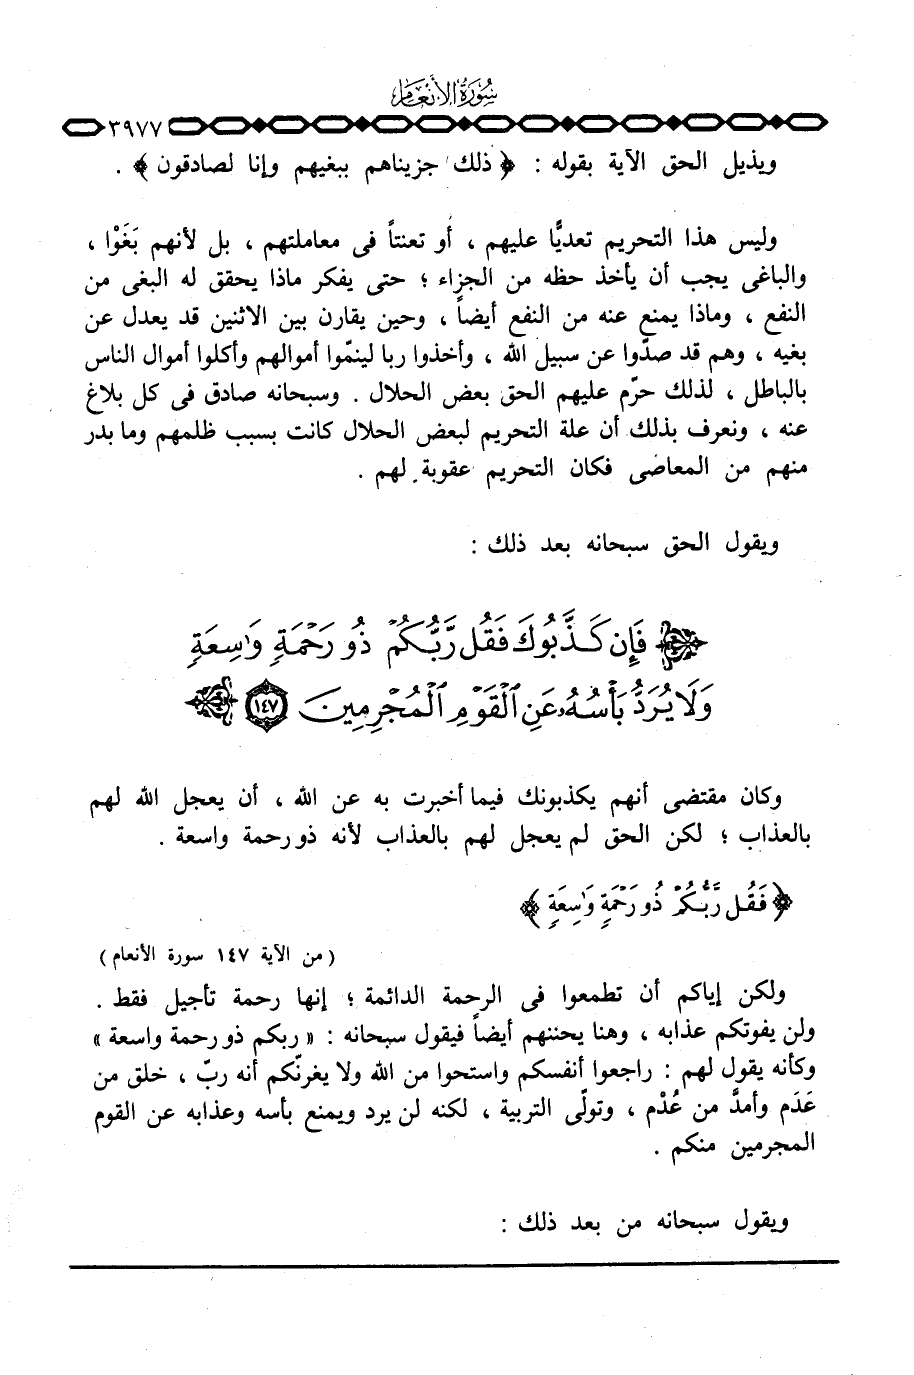 سورة الأنعام
٣٩٧٧
ويذيل الحق الآية بقوله : ﴿ ذلك جزيناهم ببغيهم وإنا لصادقون ﴾ .
وليس هذا التحريم تعديًّا عليهم ، أو تعنتاً فى معاملتهم ، بل لأنهم بَغَوْا ،
والباغى يجب أن يأخذ حظه من الجزاء ؛ حتى يفكر ماذا يحقق له البغى من
النفع ، وماذا يمنع عنه من النفع أيضاً ، وحين يقارن بين الاثنين قد يعدل عن
بغيه ، وهم قد صدّوا عن سبيل الله ، وأخذوا ربا لينمّوا أموالهم وأكلوا أموال الناس
بالباطل ، لذلك حرّم عليهم الحق بعض الحلال . وسبحانه صادق فى كل بلاغ
عنه ، ونعرف بذلك أن علة التحريم لبعض الحلال كانت بسبب ظلمهم وما بدر
منهم من المعاصى فكان التحريم عقوبة لهم .
ويقول الحق سبحانه بعد ذلك :
﴿ فَإِن كَذَّبُوكَ فَقُل رَّبُّكُمْ ذُو رَحْمَةٍ وَٰسِعَةٍ
وَلَا يُرَدُّ بَأْسُهُۥ عَنِ ٱلْقَوْمِ ٱلْمُجْرِمِينَ ١٤٧ ﴾
وكان مقتضى أنهم يكذبونك فيما أخبرت به عن الله ، أن يعجل الله لهم
بالعذاب ؛ لكن الحق لم يعجل لهم بالعذاب لأنه ذو رحمة واسعة .
﴿ فَقُل رَّبُّكُمْ ذُو رَحْمَةٍ وَٰسِعَةٍ ﴾
( من الآية ١٤٧ سورة الأنعام )
ولكن إياكم أن تطمعوا فى الرحمة الدائمة ؛ إنها رحمة تأجيل فقط .
ولن يفوتكم عذابه ، وهنا يحننهم أيضاً فيقول سبحانه : « ربكم ذو رحمة واسعة »
وكأنه يقول لهم : راجعوا أنفسكم واستحوا من الله ولا يغرنّكم أنه ربّ ، خلق من
عَدَم وأمدَّ من عُدْم ، وتولّى التربية ، لكنه لن يرد ويمنع بأسه وعذابه عن القوم
المجرمين منكم .
ويقول سبحانه من بعد ذلك :